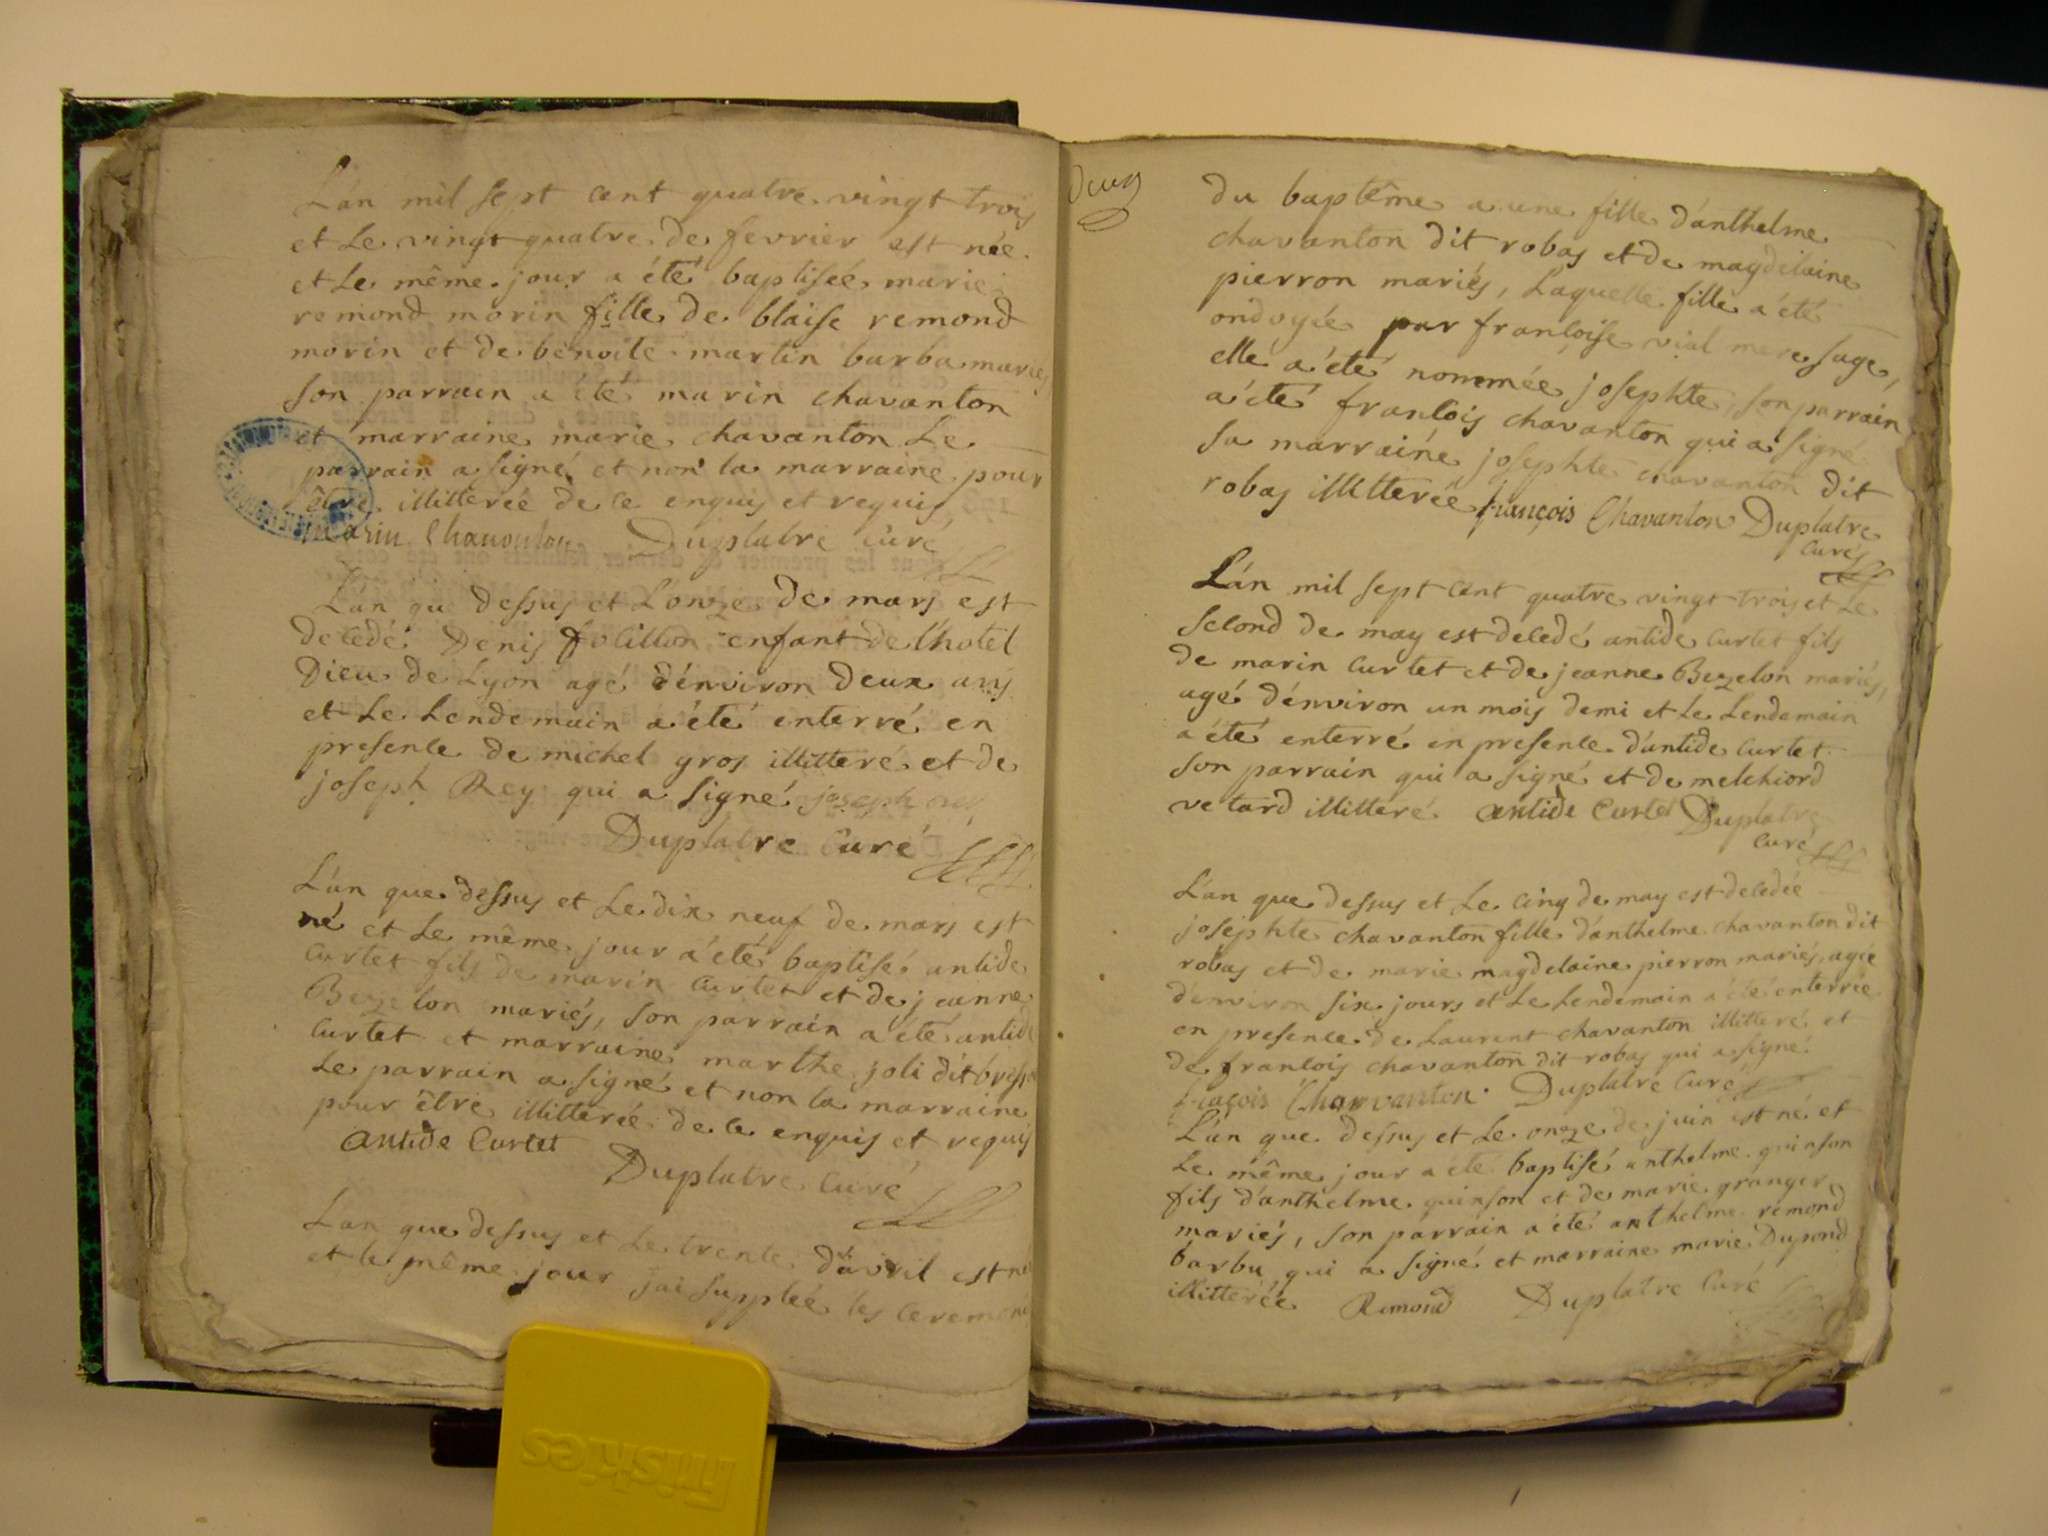 L'án mil sept cent quatre vingt trois
et Le vingt quatre de fevrier est née
et Le même jour a été baptisée marie
remond morin fille de blaise remond
morin et de benoite martin barba mariés
son parrain a été marin chavanton
et marraine marie chavanton Le
parrain a signé et non la marraine pour
être illitterée de ce enquis et requis
marin Chavanton Duplatre Curé
L'án que dessus et L'onze de mars est
decedé Denis folillon enfant de l'hotel
Dieu de Lyon agé d'énviron deux ans
et Le Lendemain a été enterré en
presence de michel gros illitteré et de
joseph Rey qui a signé joseph rey
Duplatre Curé
L'án que dessus et Le dix neuf de mars est
né et Le même jour a été baptisé antide
Curtet fils de marin Curtet et de jeanne
Bezelon mariés, son parrain a été antide
Curtet et marraine marthe joli dit
Le parrain a signé et non la marraine
pour être illitterée de ce enquis et requis
antide Curtet
Duplatre Curé
L'an que dessus et Le trente d'avril est né
et le même jour jai suppleé les ceremoni
Deux
du baptême a une fille d'anthelme
chavanton dit robas et de magdelaine
pierron mariés, Laquelle fille a été
ondoyée par françoise vial mere sage,
elle a été nommée josephte, son parrain
a été françois chavanton qui a signé
sa marraine josephte chavanton dit
robas illitterée françois Chavanton Duplatre
Curé
L'án mil sept cent quatre vingt trois et Le
second de may est decedé antide Curtet fils
de marin Curtet et de jeanne Bezelon mariés,
agé d'énviron un mois demi et Le Lendemain
a été enterré en presence d'antide Curtet
son parrain qui a signé et de melchiord
vetard illitteré antide Curtet Duplatre
Curé
L'án que dessus et Le cinq de may est decedée
josephte chavanton fille d'anthelme chavanton dit
robas et de marie magdelaine pierron mariés, agée
d'énviron six jours et Le Lendemain a été enterrée
en presence de Laurent chavanton illitteré et
de françois chavanton dit robas qui a signé.
fraçois Chavvanton. Duplatre Curé
L'án que dessus et Le onze de juin est né et
Le même jour a été baptisé anthelme guinson
fils d'anthelme guinson et de marie granger
mariés, son parrain a été anthelme remond
barbu qui a signé et marraine marie Dupond
illitterée Remond Duplatre Curé
Friskies